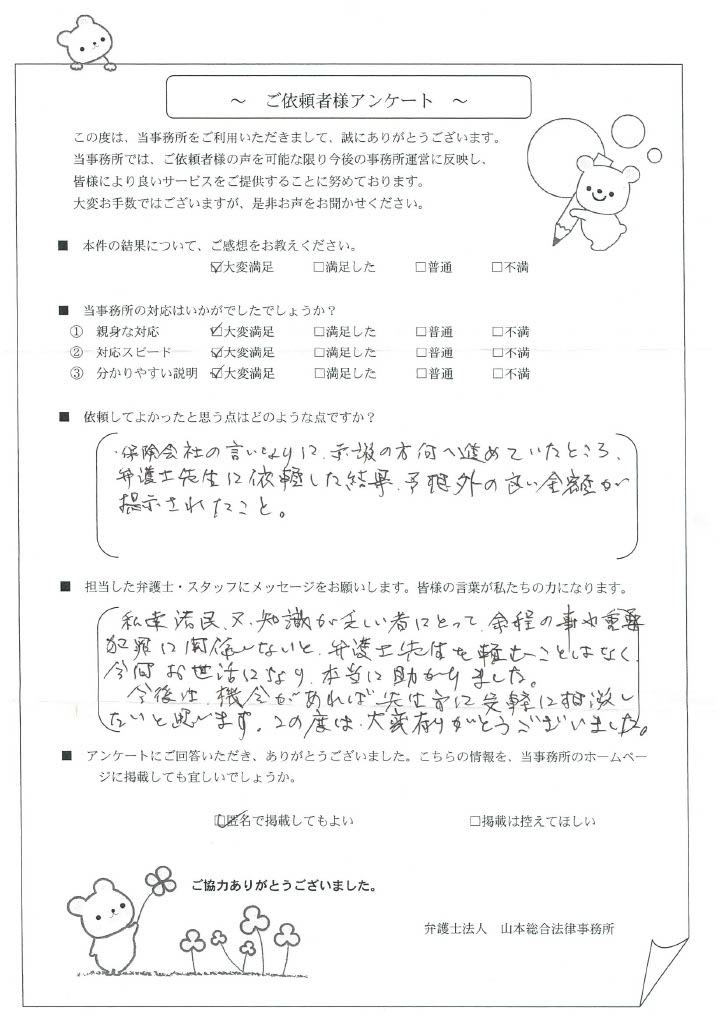 ～ ご依頼者様アンケート ～
この度は、当事務所をご利用いただきまして、誠にありがとうございます。
当事務所では、ご依頼者様の声を可能な限り今後の事務所運営に反映し、
皆様により良いサービスをご提供することに努めております。
大変お手数ではございますが、是非お声をお聞かせください。
■ 本件の結果について、ご感想をお教えください。
☑大変満足 □満足した □普通 □不満
■ 当事務所の対応はいかがでしたでしょうか？
① 親身な対応 ☑大変満足 □満足した □普通 □不満
② 対応スピード ☑大変満足 □満足した □普通 □不満
③ 分かりやすい説明 ☑大変満足 □満足した □普通 □不満
■ 依頼してよかったと思う点はどのような点ですか？
・保険会社の言いなりに、示談の方向へ進めていたところ、
弁護士先生に依頼した結果、予想外の良い金額が
提示されたこと。
■ 担当した弁護士・スタッフにメッセージをお願いします。皆様の言葉が私たちの力になります。
私連 民、又、知識が乏しい者にとって、余程の事や重要
犯罪に関係しないと、弁護士先生を頼むことはなく、
今回お世話になり、本当に助かりました。
今後は、機会があれば先生方に気軽に相談し
たいと思います。この度は、大変有りがとうございました。
■ アンケートにご回答いただき、ありがとうございました。こちらの情報を、当事務所のホームペー
ジに掲載しても宜しいでしょうか。
☑匿名で掲載してもよい □掲載は控えてほしい
ご協力ありがとうございました。
弁護士法人 山本総合法律事務所